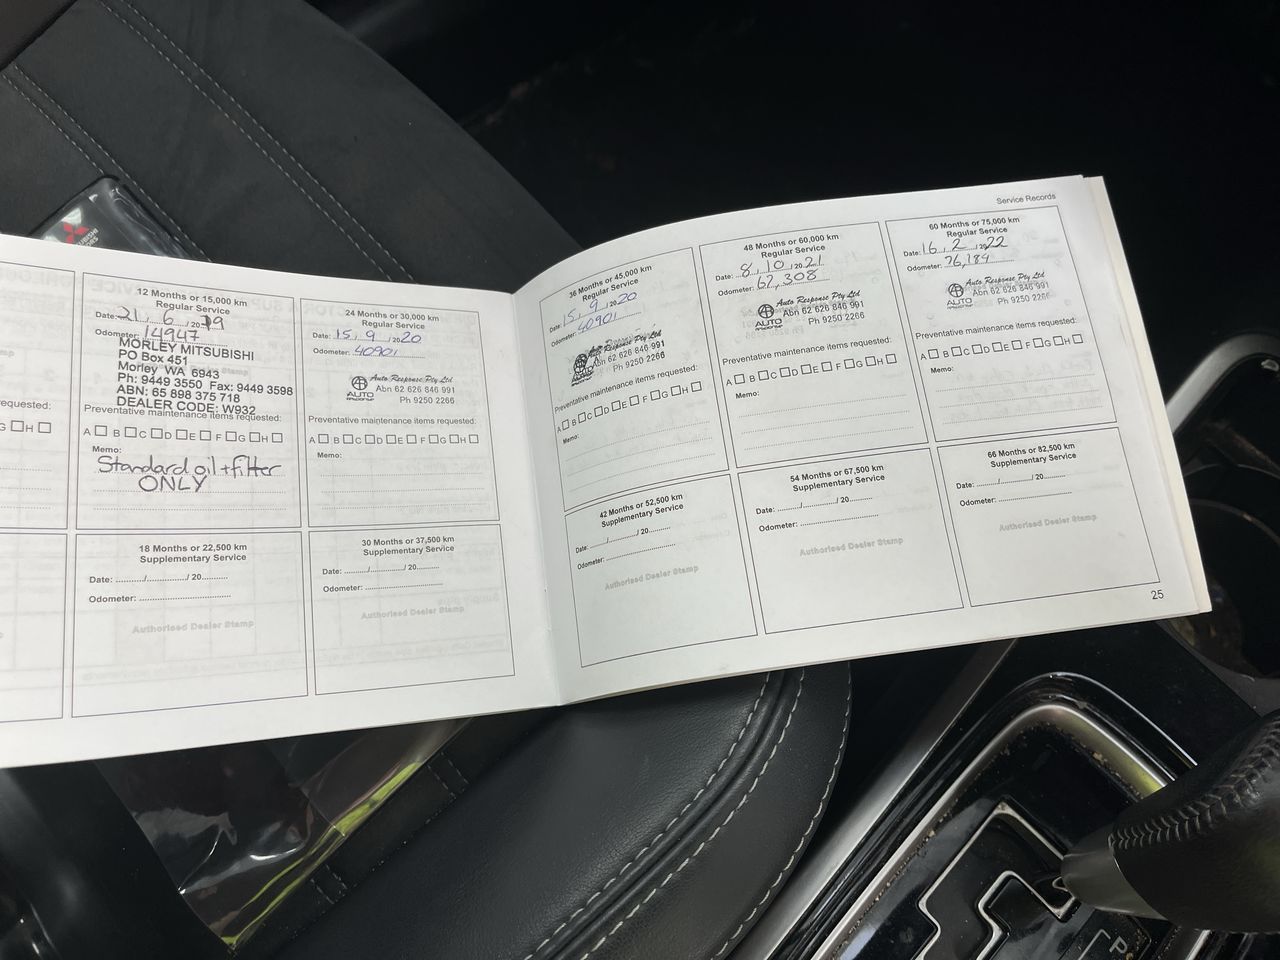 Service Records
equested:
G □ H □
12 Months or 15,000 km
Regular Service
Date: 21 / 6 / 20 19
Odometer: 14947
MORLEY MITSUBISHI
PO Box 451
Morley WA 6943
Ph: 9449 3550 Fax: 9449 3598
ABN: 65 898 375 718
DEALER CODE: W932
Preventative maintenance items requested:
A □ B □ C □ D □ E □ F □ G □ H □
Memo:
Standard oil + filter
ONLY
24 Months or 30,000 km
Regular Service
Date: 15 / 9 / 20 20
Odometer: 40901
Auto Response Pty Ltd
Abn 62 626 846 991
AUTO
Ph 9250 2266
Preventative maintenance items requested:
A □ B □ C □ D □ E □ F □ G □ H □
Memo:
18 Months or 22,500 km
Supplementary Service
Date: ........../............../ 20.........
Odometer: ................................
Authorised Dealer Stamp
30 Months or 37,500 km
Supplementary Service
Date: ........../............../ 20.........
Odometer: ................................
Authorised Dealer Stamp
36 Months or 45,000 km
Regular Service
Date: 15 / 9 / 20 20
Odometer: 40901
Auto Response Pty Ltd
Abn 62 626 846 991
Ph 9250 2266
Preventative maintenance items requested:
A □ B □ C □ D □ E □ F □ G □ H □
Memo:
48 Months or 60,000 km
Regular Service
Date: 8 / 10 / 20 21
Odometer: 62,308
Auto Response Pty Ltd
Abn 62 626 846 991
AUTO
Ph 9250 2266
Preventative maintenance items requested:
A □ B □ C □ D □ E □ F □ G □ H □
Memo:
60 Months or 75,000 km
Regular Service
Date: 16 / 2 / 20 22
Odometer: 76,189
Auto Response Pty Ltd
Abn 62 626 846 991
AUTO
Ph 9250 2266
Preventative maintenance items requested:
A □ B □ C □ D □ E □ F □ G □ H □
Memo:
42 Months or 52,500 km
Supplementary Service
Date: ........../............../ 20.........
Odometer: ................................
Authorised Dealer Stamp
54 Months or 67,500 km
Supplementary Service
Date: ........../............../ 20.........
Odometer: ................................
Authorised Dealer Stamp
66 Months or 82,500 km
Supplementary Service
Date: ........../............../ 20.........
Odometer: ................................
Authorised Dealer Stamp
25
P